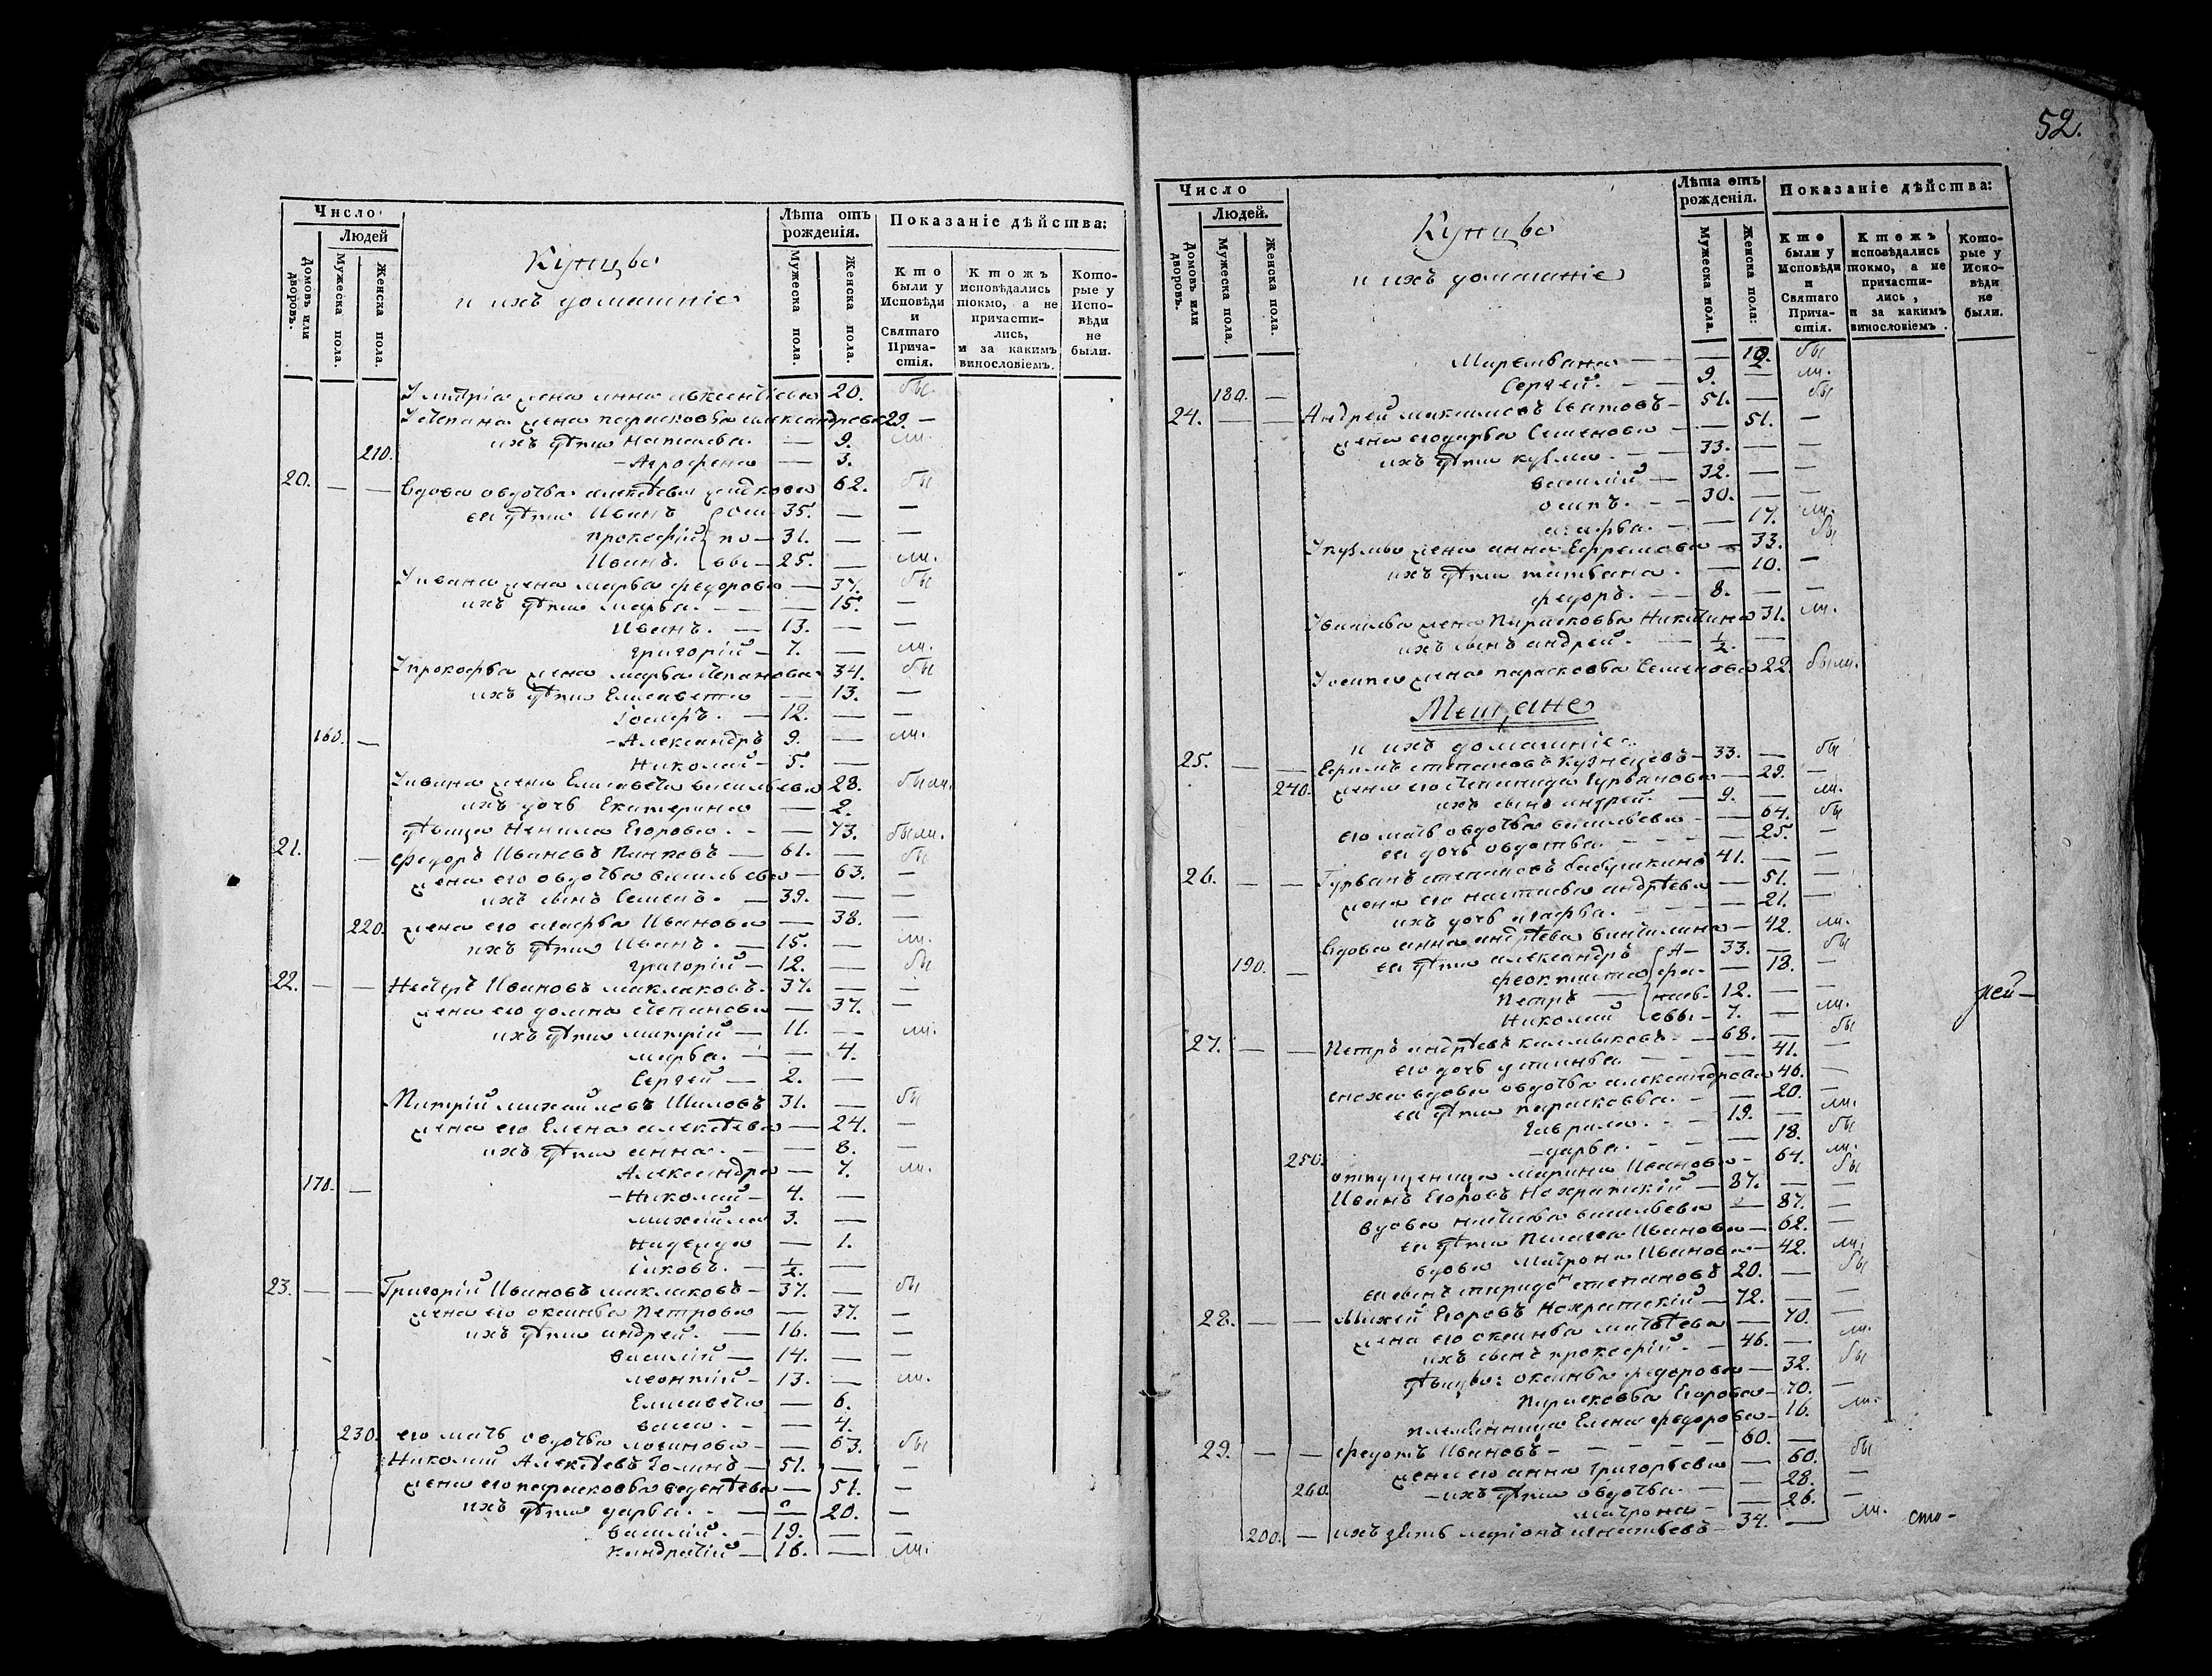 Число
Людей
Домовъ или дворовъ.
Мужеска пола.
Женска пола.
Купцы
и ихъ домашніе
Лѣта отъ рожденія.
Мужеска пола.
Женска пола.
Показаніе дѣйства:
Кто были у Исповѣди и Святаго Прича-стія.
Ктожъ исповѣдались токмо, а не причасти-лись, и за какимъ винословіемъ.
Кото-рые у Испо-вѣди не были.
У митрія жена анна 20. бы
У степана жена парасковья александрова 29. —
ихъ дѣти наталья. — 9. ли.
210. - Агрофена — 3.
20. — — вдова овдотья алексѣева 62. бы
еи дѣти Иванъ 35. — —
прокофій 31. — —
Иванъ. 25. — ли.
У ивана жена марѳа федорова — 37. бы
ихъ дѣти марѳа. — — 15. —
Иванъ. — 13. — —
григорій — 7. — ли.
У прокофья жена марѳа степанова 34. бы
ихъ дѣти Елисавета — 13. —
Іосифъ. — 12. — —
160. — - Александръ 9. — ли.
Николай — 5. —
У ивана жена Елисавета васильева 28. были.
ихъ дочь Екатерина — 2.
дѣвица Ненила Егорова. — 73. были.
21. — федоръ Ивановъ — 61. — бы
жена его овдотья васильева — 63. —
ихъ сынъ Семенъ. — 39. — —
220. жена его агафья Иванова — 38. —
ихъ дѣти Иванъ. — 15. — ли.
григорій — 12. — бы
22. — — Несторъ Ивановъ маклаковъ — 37. — —
жена его домна степанова — 37. —
ихъ дѣти митрій — 11. — ли.
марѳа. — — 4.
Сергей — 2. —
Митрій михайловъ Шиловъ 31. — бы
жена его Елена алексѣева — 24. —
ихъ дѣти анна. — — 8. —
Александра — 7. ли.
170. — - Николай — 4. —
михайла 3. —
надежда — 1.
Іаковъ. — ½. —
23. — — Григорій Ивановъ маклаковъ — 37. — бы
жена его оксинья Петрова — 37. —
ихъ дѣти андрей. — 16. — —
василій — 14. — —
леонтій — 13. — ли.
Елисавета — 6.
васса. — — 4.
230. его мать овдотья логинова — — 63. бы
Николай Алексѣевъ — 51. — —
жена его парасковья — 51. —
ихъ дѣти дарья. — — 20. —
василій. — 19. — —
кандратій — 16. — ли.
52.
Число
Людей.
Домовъ или дворовъ.
Мужеска пола.
Женска пола.
Купцы
и ихъ домашніе
Лѣта отъ рожденія.
Мужеска пола.
Женска пола:
Показаніе дѣйства:
Кто были у Исповѣди и Святаго Прича-стія.
Ктожъ исповѣдались токмо, а не причасти-лись, и за какимъ винословіемъ.
Кото-рые у Испо-вѣди не были.
Маремьяна — — бы
180. — Сергей. — 9. — ли.
24. — — Андрей максимовъ — 51. — бы
жена его дарья Семенова — — 51. —
ихъ дѣти кузма. — 33. — —
василій — 32. — —
осипъ. — 30. — —
агафья. — — 17. ли.
У кузмы жена анна Ефремова — 33. бы
ихъ дѣти татьяна. — 10. —
федоръ. — 8. — —
У василья жена Парасковья Никитина 31. ли.
ихъ сынъ андрей. — ½. —
У осипа жена парасковья Семенова 22. были.
Мещане
и ихъ домашніе.
25. — — Ефимъ степановъ Кузнецовъ — 33. — бы
240. жена его степанида Гурьянова — 29. —
ихъ сынъ андрей. — 9. — ли.
его мать овдотья васильева — — 64. бы
еи дочь овдотья. — — 25. —
26. — — Гурьянъ степановъ бабушкинъ 41. — —
жена его настасья андрѣева — 51. —
ихъ дочь агафья. — — 21. —
вдова анна андрѣева — 42. ли.
190. — еи дѣти александръ 33. — бы
феоктиста — 18. —
Петръ 12. — —
Николай 7. — ли.
27. — — Петръ андрѣевъ калмыковъ — 68. — бы
его дочь устинья — — 41. —
сноха вдова овдотья александрова 46. —
еи дѣти парасковья. — — 20. —
Гаврила. — 19. — ли.
250. - дарья. — — 18. бы
отпущеница марина Иванова — 64. ли.
Иванъ Егоровъ Нохратскій — 87. — бы
вдова настасья васильева — 87. —
еи дѣти Пелагея Иванова — 62. —
вдова Матрона Иванова — 42. ли.
еи сынъ спиридонъ степановъ 20. — бы
28. — — Михей Егоровъ Нохратскій — 72. — —
жена его оксинья матвѣева — 70. —
ихъ сынъ прокофій. — 46. — ли.
дѣвицы: оксинья федорова — 32. бы
Парасковья Егорова — 70. —
племянница Елена федорова — 16. ли.
29. — — федотъ Ивановъ — 60. — бы
260. жена его анна Григорьева — 60. —
- ихъ дѣти овдотья. — 28. —
матрона — — 26. ли.
200. — ихъ зять ларіонъ игнатьевъ — 34. —
рей—
сто—